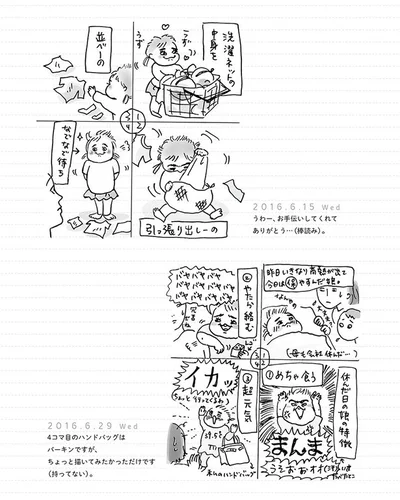 洗濯ネットの
中身を
うず
うず
引っ張り出しーの
並べーの
なでなで待ち
1
2
3
4
2016.6.15 Wed
うわー、お手伝いしてくれて
ありがとう…(棒読み)。
昨日いきなり高熱が出て
今日は保やすんだ娘。
(母も会社休んだ…)
休んだ日の娘の特徴
①めちゃ食う
まんま
②やたら絡む
バヤバヤバヤ
バヤバヤバヤ
③超元気
イカッ
ちょっと行ってくるわ
私のハンドバッグ
1
2
3
4
2016.6.29 Wed
4コマ目のハンドバッグは
バーキンですが、
ちょっと描いてみたかっただけです
(持ってない)。